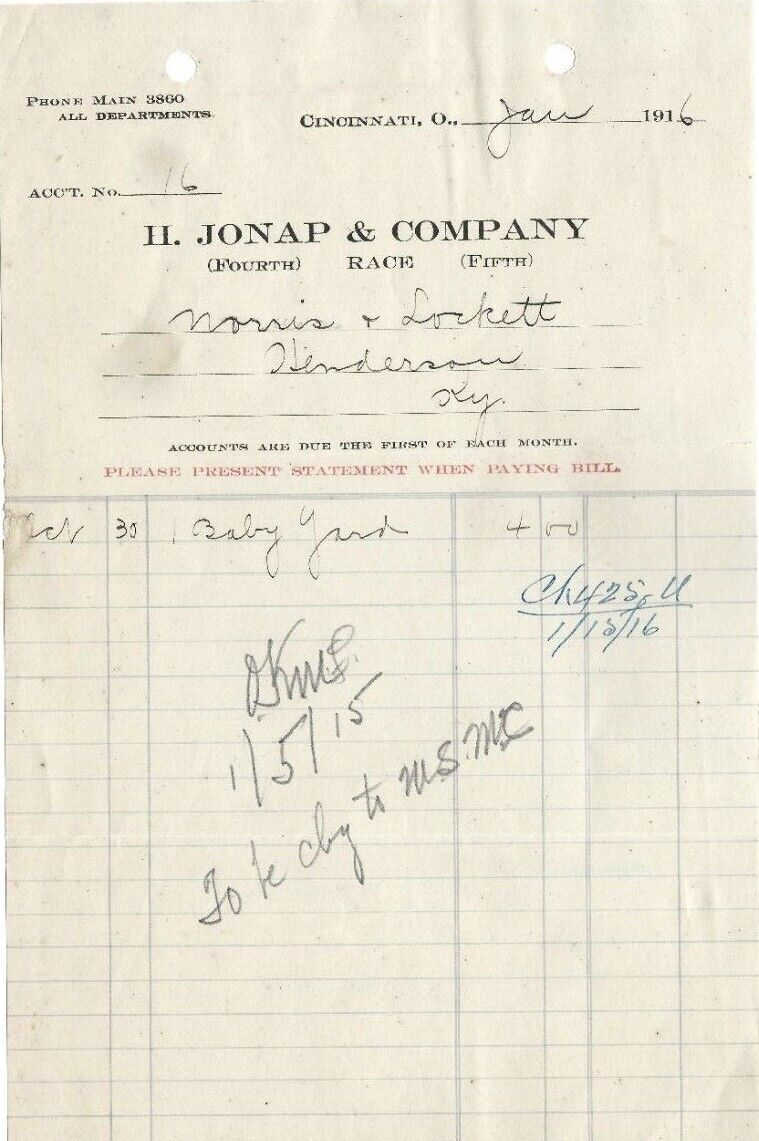 PHONE MAIN 3860
ALL DEPARTMENTS.
CINCINNATI, O., Jan 1916
ACC'T. No. 16
H. JONAP & COMPANY
(FOURTH) RACE (FIFTH)
Norris & Lockett
Henderson
Ky.
ACCOUNTS ARE DUE THE FIRST OF EACH MONTH.
PLEASE PRESENT STATEMENT WHEN PAYING BILL.
Oct 30 1 Baby Yard 4 00
Ck 425
1/15/16
1/5/15
To be chg to M.S. Mc